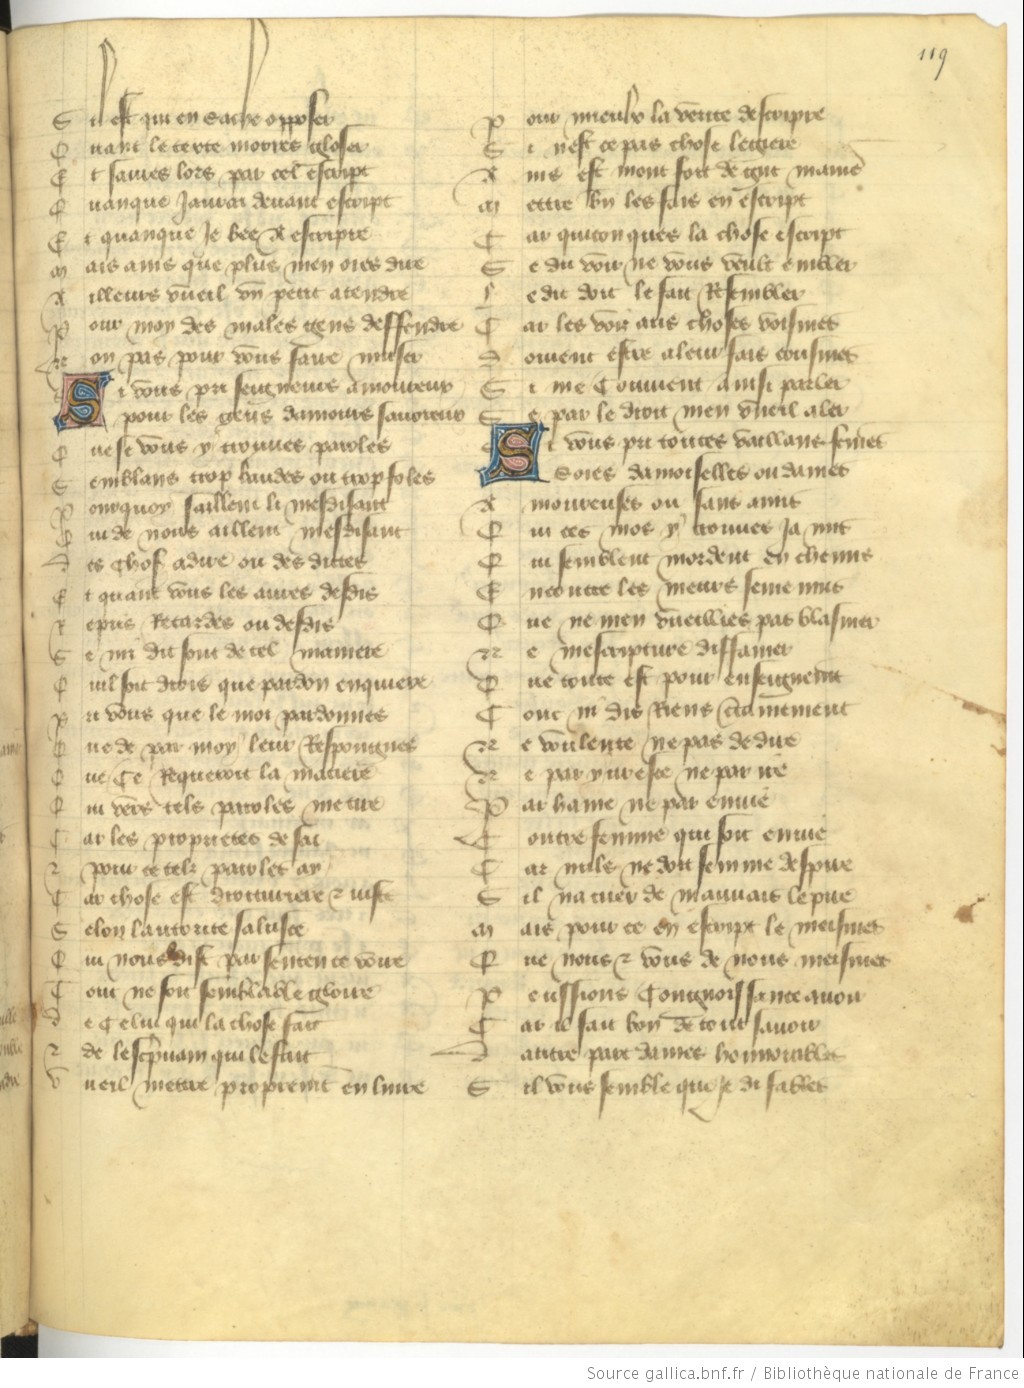 119
S il est qui en sache opposer
Q uant le texte morres gloser
E t saures lors par cel escript
Q uanque Jaurai devant escript
E t quanque Je bee a escripre
M ais ains que plus men oies dire
A illeurs vueil vn petit atendre
P our moy des males gens deffendre
N on pas pour vous faire muser
S i vous pri seigneurs amoureux
pour les gieus damours savoureux
Q ue se vous y trouves paroles
S emblans trop baudes ou trop foles
P ourquoy saillent li mesdisant
Q ui de nous aillent mesdisant
D es choses a dire ou des dictes
E t quant vous les aures desdis
R epris Retardes ou desdis
S e mi dit sont de tel maniere
Q uil soit drois que pardon enquiere
P ri vous que le moi pardonnes
Q ue de par moy leur Respoingnes
Q ue Ce Requeroit la matiere
Q ui vers tels paroles me tire
C ar les proprietes de sai
2 pour ce telz paroles ay
C ar chose est droituriere 2 iuste
S elon lautorite saluste
Q ui nous dist par sentence voire
T out ne soit semblable gloire
D e Celui qui la chose fait
2 de lescpuain qui le fait
V ueil mettre proprement en liure
P our mieulx la verite descripre
S i nest ce pas chose legiere
A ins est mout fort de grant maniere
M ettre bn les fais en escript
C ar quiconques la chose escript
S e du voir ne vous veult embler
L e dit doit le fait Resembler
C ar les voir aus choses voisines
D oivent estre a leur fais cousines
S i me Convient ainsi parler
S e par le droit men vueil aler
S i vous pri toutes vaillans femes
Soies damoiselles ou dames
A moureuses ou sans amis
Q ui ces mos y trouues Ja mis
Q ui semblent mordent en chenins
E ncontre les meurs femenins
Q ue ne men vueillies pas blasmer
N e mescripture diffamer
Q ue toute est pour enseignement
C onc ni dis Riens certainement
N e voulente ne pas de dire
N e par yuresce ne par ire
P ar haine ne par enuie
C ontre femme qui soit en uie
C ar nuls ne doit femme despire
S il na cuer de mauuais le pire
M ais pour ce en escript le meismes
Q ue nous 2 vous de nous meismes
P eussions Congnoissance auoir
C ar il fait bon de tout sauoir
D autre part dames honnorables
S il vous semble que Je di fables